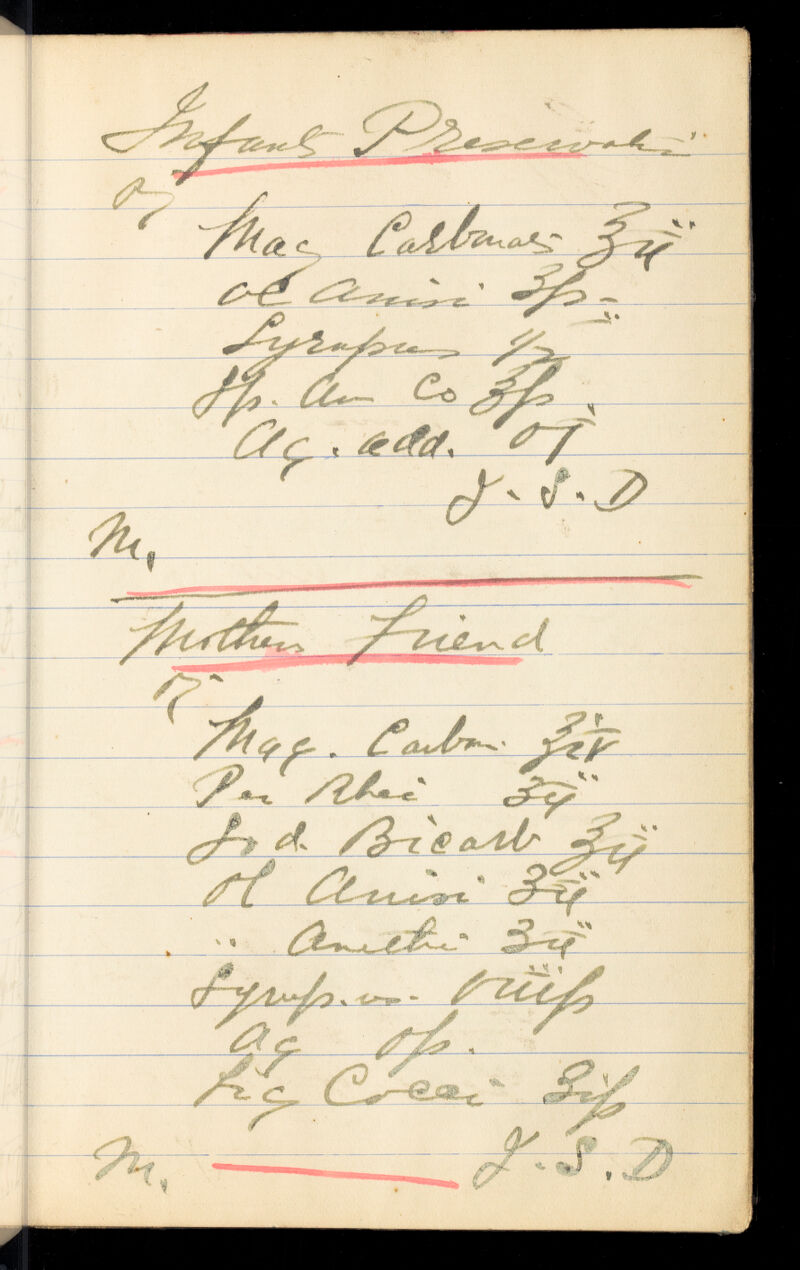 Infants Preservati
℞
Mag Carbonas ʒii
Ol Anisi ʒſs
Syrupus
Sp. Am Co ʒſs
Aq. add. Oi
F. S. D
M.
Mothers Friend
℞
Mag. Carbon. ʒiv
Pu Rhei ʒii
Sod. Bicarb ʒii
Ol Anisi ʒii
" Anethi ʒii
Syrup. us.
Aq Oſs.
Liq Cocci ʒiſs
M. F. S. D